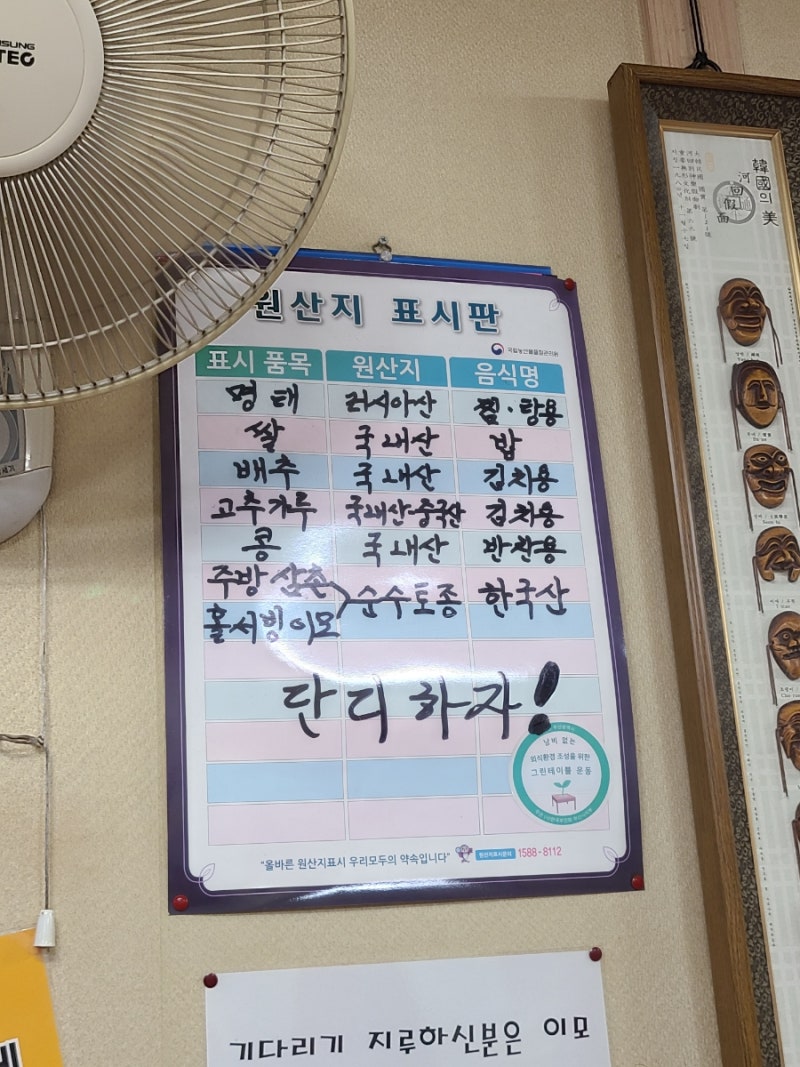 SUNG
TEC
원산지 표시판
국립농산물품질관리원
표시 품목 원산지 음식명
명태 러시아산 찜·탕용
쌀 국내산 밥
배추 국내산 김치용
고추가루 국내산·중국산 김치용
콩 국내산 반찬용
주방 삼촌 순수토종 한국산
홀서빙 이모
단디하자!
낭비 없는
외식환경 조성을 위한
그린테이블 운동
"올바른 원산지표시 우리모두의 약속입니다" 원산지표시문의 1588-8112
기다리기 지루하신분은 이모
韓國의 美
河回假面